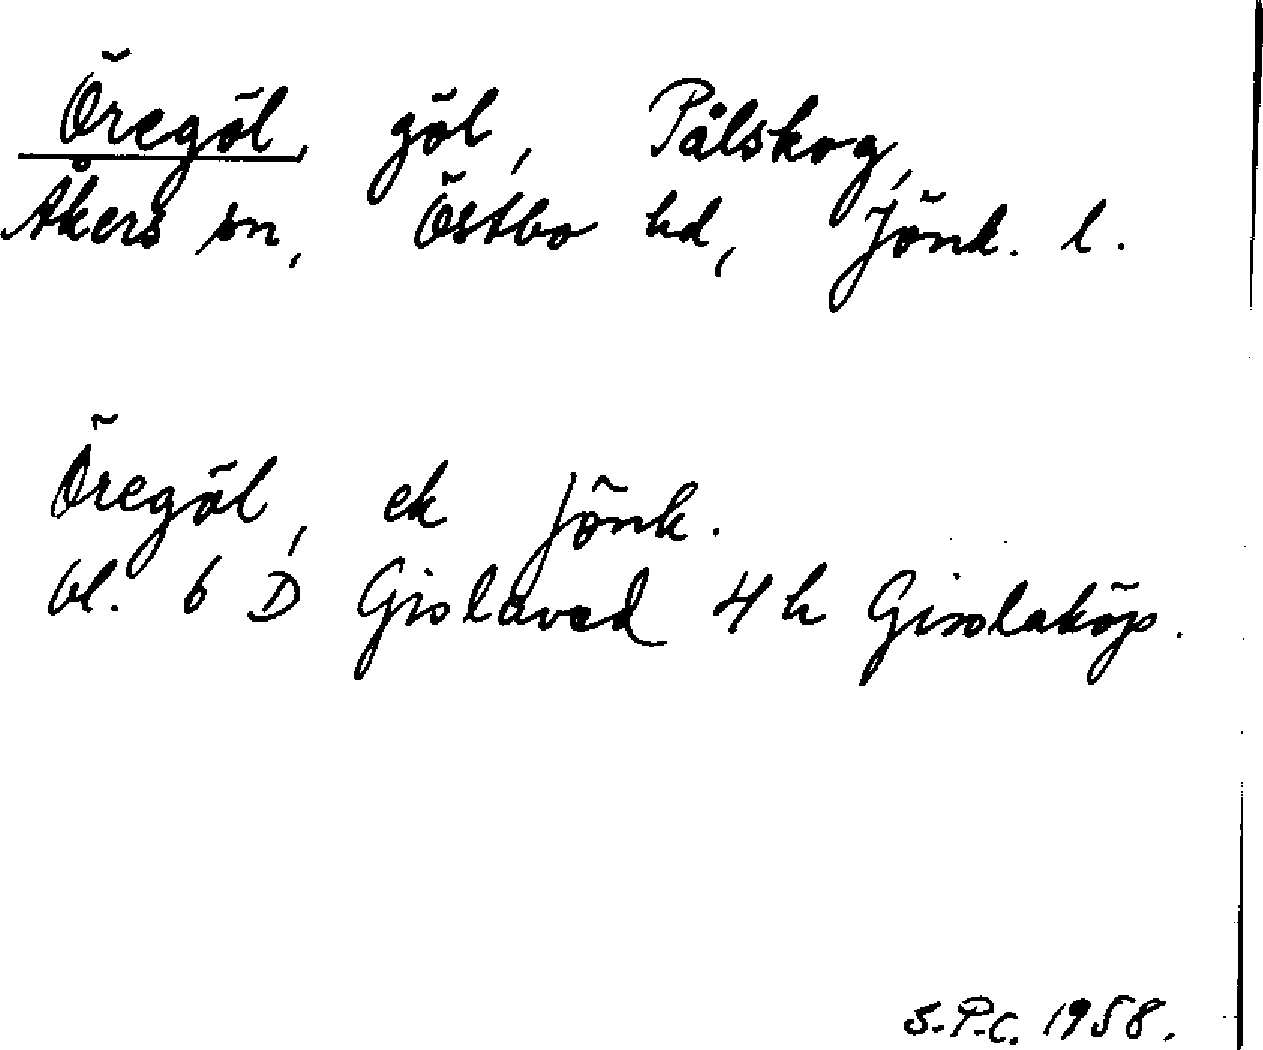 Öregöl, göl, Pålskog,
Åkers sn, Östbo hd, Jönk. l.
Öregöl, ek Jönk.
bl. 6 D Gislaved 4h Gisslaköp.
S.P.C. 1958.